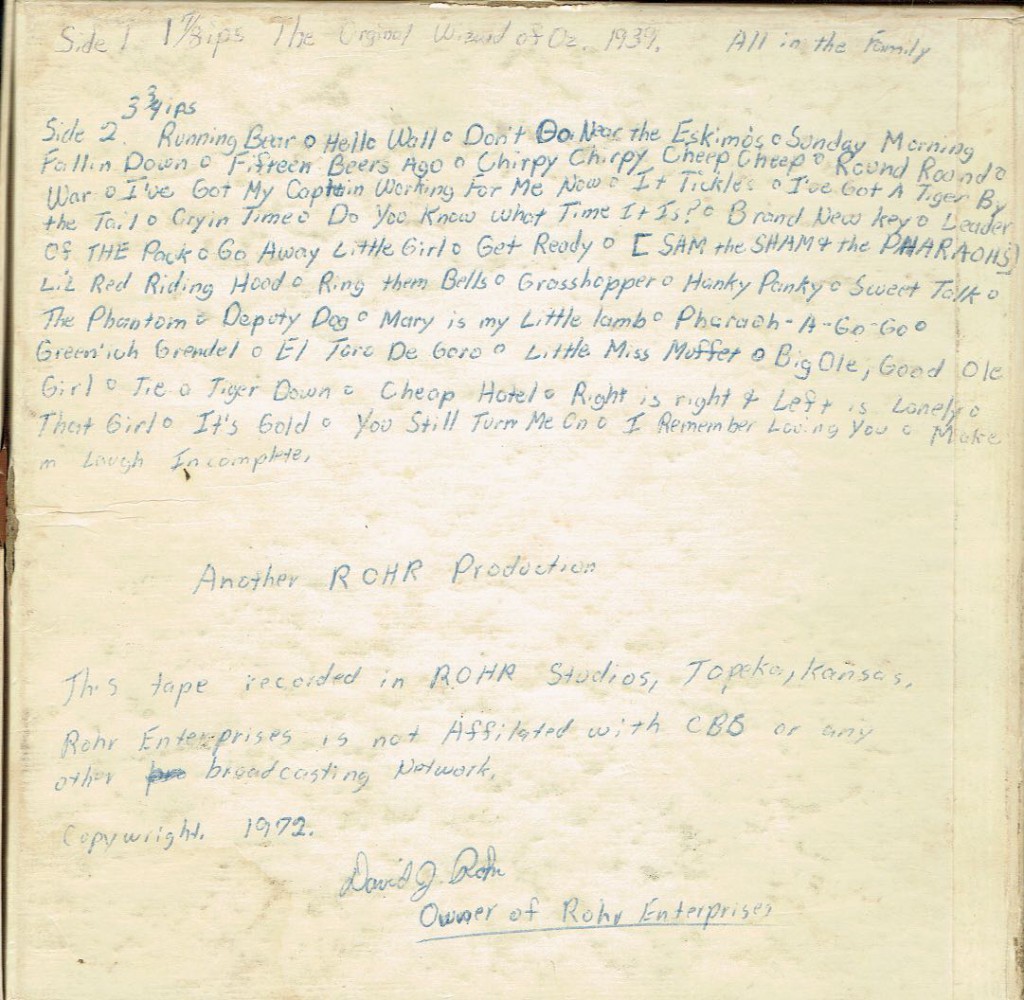 Side 1 1 7/8 ips The Orginal Wizard of Oz. 1939. All in the Family
3 3/4 ips
Side 2 Running Bear o Hello Wall o Don't Go Near the Eskimos o Sunday Morning
Fallin Down o Fifteen Beers Ago o Chirpy Chirpy Cheep Cheep o Round Round o
War o I've Got My Captin Working For Me Now o It Tickles o I've Got A Tiger By
the Tail o Cryin Time o Do You Know What Time It Is? o Brand New Key o Leader
Of THE Pack o Go Away Little Girl o Get Ready o [SAM the SHAM & the PHARAOHS]
Li'l Red Riding Hood o Ring them Bells o Grasshopper o Hanky Panky o Sweet Talk o
The Phantom o Deputy Dog o Mary is my Little lamb o Pharaoh-A-Go-Go o
Green'ich Grendel o El Toro De Goro o Little Miss Muffet o Big Ole, Good Ole
Girl o Tie a Tiger Down o Cheap Hotel o Right is right & Left is Lonely o
That Girl o It's Gold o You Still Turn Me On o I Remember Loving You o Make
m Laugh Incomplete.
Another ROHR Production
This tape recorded in ROHR Studios, Topeka, Kansas.
Rohr Enterprises is not Affilated with CBB or any
other broadcasting Network.
Copywright. 1972.
David J. Rohr
Owner of Rohr Enterprises